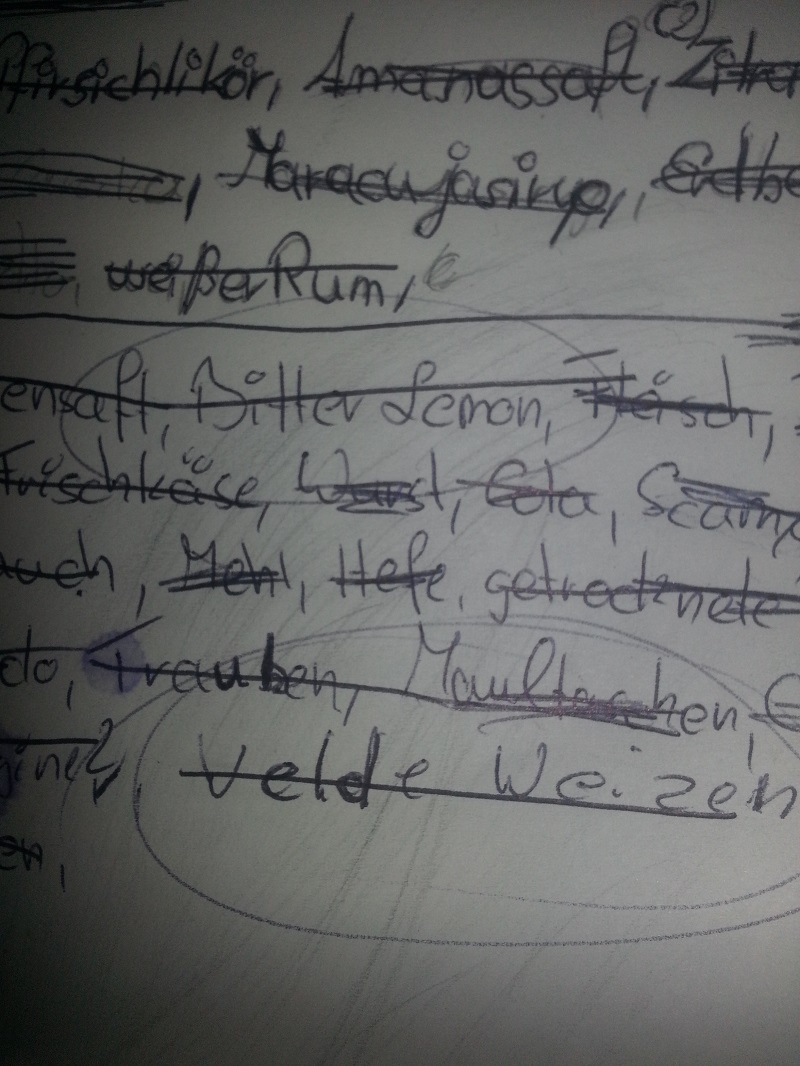 Pfirsichlikör, Ananassaft, (2) Zitro
Maracujasirup, Erdbe
weißer Rum,
ensaft, Bitter Lemon, Fleisch,
Frischkäse, Wurst, Cola, Scamp
auch, Mehl, Hefe, getrocknete
do, Trauben, Maultaschen,
gine?
Velde Weizen
en,